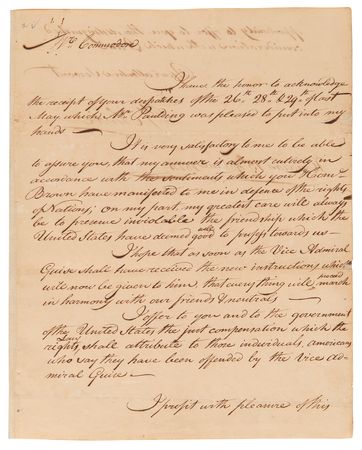 Mr. Commodore
I have the honor to acknowledge
the receipt of your despatches of the 26th 28th & 29th of last
May which Mr. Paulding was pleased to put into my
hands—
It is very satisfactory to me to be able
to assure you, that my answer is almost entirely in
accordance with the sentiments which you & Como
Brown have manifested to me in defence of the rights
of Nations; on my part, my greatest care will always
be to preserve inviolable the friendship which the
United States have deemed well good to profess towards us—
I hope that as soon as the Vice Admiral
Guise shall have received the new instructions which
will now be given to him, that every thing will proceed march
in harmony with our friends & neutrals—
I offer to you and to the government
of the United States the just compensation which the
rights, shall attribute to those individuals, americans
who say they have been offended by the Vice Ad-
miral Guise—
I profit with pleasure of this